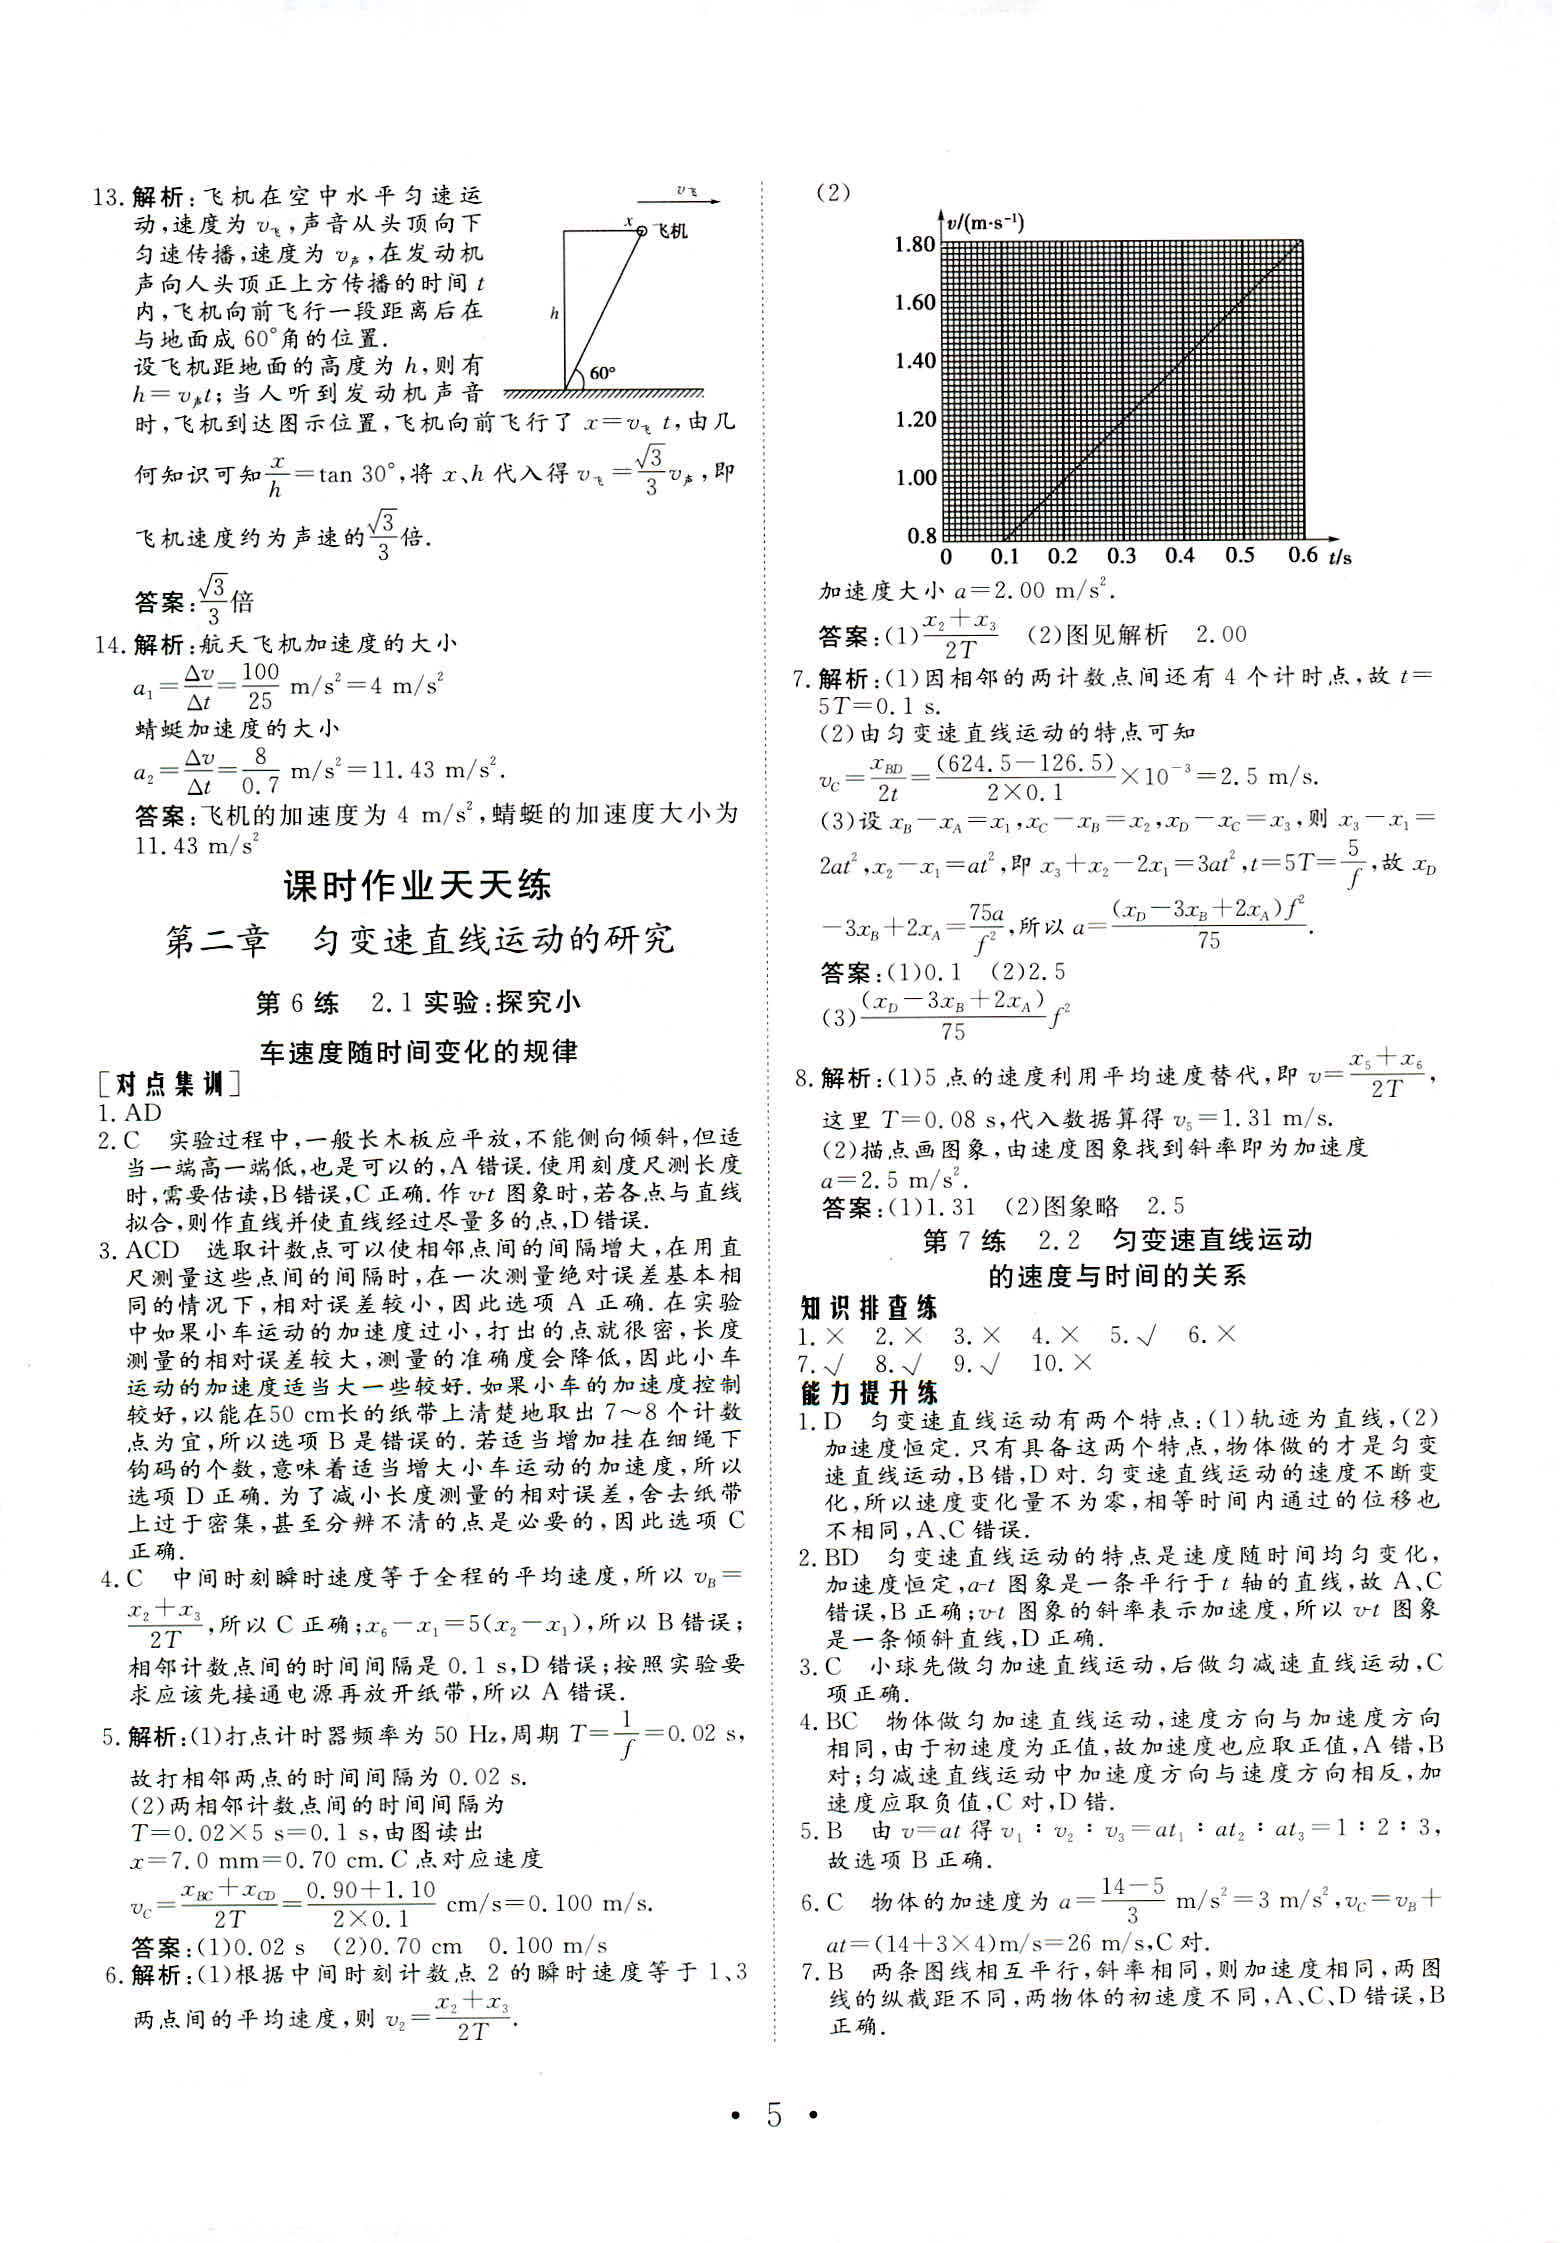 13. 解析:飞机在空中水平匀速运
动,速度为 v飞,声音从头顶向下
匀速传播,速度为 v声,在发动机
声向人头顶正上方传播的时间 t
内,飞机向前飞行一段距离后在
与地面成 60°角的位置.
设飞机距地面的高度为 h,则有
h=v声t;当人听到发动机声音
v飞
x
飞机
h
60°
时,飞机到达图示位置,飞机向前飞行了 x=v飞 t,由几
何知识可知x/h=tan 30°,将 x、h 代入得 v飞=√3/3 v声,即
飞机速度约为声速的√3/3倍.
答案:√3/3倍
14. 解析:航天飞机加速度的大小
a₁=Δv/Δt=100/25 m/s²=4 m/s²
蜻蜓加速度的大小
a₂=Δv/Δt=8/0.7 m/s²=11.43 m/s².
答案:飞机的加速度为 4 m/s²,蜻蜓的加速度大小为
11.43 m/s²
课时作业天天练
第二章 匀变速直线运动的研究
第 6 练 2.1 实验:探究小
车速度随时间变化的规律
[对点集训]
1. AD
2. C 实验过程中,一般长木板应平放,不能侧向倾斜,但适
当一端高一端低,也是可以的,A 错误.使用刻度尺测长度
时,需要估读,B错误,C 正确.作 v-t 图象时,若各点与直线
拟合,则作直线并使直线经过尽量多的点,D错误.
3. ACD 选取计数点可以使相邻点间的间隔增大,在用直
尺测量这些点间的间隔时,在一次测量绝对误差基本相
同的情况下,相对误差较小,因此选项 A 正确.在实验
中如果小车运动的加速度过小,打出的点就很密,长度
测量的相对误差较大,测量的准确度会降低,因此小车
运动的加速度适当大一些较好.如果小车的加速度控制
较好,以能在50 cm长的纸带上清楚地取出 7~8 个计数
点为宜,所以选项 B 是错误的.若适当增加挂在细绳下
钩码的个数,意味着适当增大小车运动的加速度,所以
选项 D 正确.为了减小长度测量的相对误差,舍去纸带
上过于密集,甚至分辨不清的点是必要的,因此选项 C
正确.
4. C 中间时刻瞬时速度等于全程的平均速度,所以 vB=
(x₂+x₃)/2T,所以 C 正确;x₆-x₁=5(x₂-x₁),所以 B 错误;
相邻计数点间的时间间隔是 0.1 s,D 错误;按照实验要
求应该先接通电源再放开纸带,所以 A 错误.
5. 解析:(1)打点计时器频率为 50 Hz,周期 T=1/f=0.02 s,
故打相邻两点的时间间隔为 0.02 s.
(2)两相邻计数点间的时间间隔为
T=0.02×5 s=0.1 s,由图读出
x=7.0 mm=0.70 cm. C 点对应速度
vC=(xBC+xCD)/2T=(0.90+1.10)/(2×0.1) cm/s=0.100 m/s.
答案:(1)0.02 s (2)0.70 cm 0.100 m/s
6. 解析:(1)根据中间时刻计数点 2 的瞬时速度等于 1、3
两点间的平均速度,则 v₂=(x₂+x₃)/2T.
(2)
v/(m·s⁻¹)
1.80
1.60
1.40
1.20
1.00
0.8
0 0.1 0.2 0.3 0.4 0.5 0.6 t/s
加速度大小 a=2.00 m/s².
答案:(1)(x₂+x₃)/2T (2)图见解析 2.00
7. 解析:(1)因相邻的两计数点间还有 4 个计时点,故 t=
5T=0.1 s.
(2)由匀变速直线运动的特点可知
vC=xBD/2t=(624.5-126.5)/(2×0.1)×10⁻³=2.5 m/s.
(3)设 xB-xA=x₁,xC-xB=x₂,xD-xC=x₃,则 x₃-x₁=
2at²,x₂-x₁=at²,即 x₃+x₂-2x₁=3at²,t=5T=5/f,故 xD
-3xB+2xA=75a/f²,所以 a=(xD-3xB+2xA)f²/75.
答案:(1)0.1 (2)2.5
(3)(xD-3xB+2xA)/75 f²
8. 解析:(1)5 点的速度利用平均速度替代,即 v=(x₅+x₆)/2T,
这里 T=0.08 s,代入数据算得 v₅=1.31 m/s.
(2)描点画图象,由速度图象找到斜率即为加速度
a=2.5 m/s².
答案:(1)1.31 (2)图象略 2.5
第 7 练 2.2 匀变速直线运动
的速度与时间的关系
知识排查练
1. × 2. × 3. × 4. × 5. √ 6. ×
7. √ 8. √ 9. √ 10. ×
能力提升练
1. D 匀变速直线运动有两个特点:(1)轨迹为直线,(2)
加速度恒定.只有具备这两个特点,物体做的才是匀变
速直线运动,B 错,D 对.匀变速直线运动的速度不断变
化,所以速度变化量不为零,相等时间内通过的位移也
不相同,A、C 错误.
2. BD 匀变速直线运动的特点是速度随时间均匀变化,
加速度恒定,a-t 图象是一条平行于 t 轴的直线,故 A、C
错误,B 正确;v-t 图象的斜率表示加速度,所以 v-t 图象
是一条倾斜直线,D 正确.
3. C 小球先做匀加速直线运动,后做匀减速直线运动,C
项正确.
4. BC 物体做匀加速直线运动,速度方向与加速度方向
相同,由于初速度为正值,故加速度也应取正值,A 错,B
对;匀减速直线运动中加速度方向与速度方向相反,加
速度应取负值,C 对,D 错.
5. B 由 v=at 得 v₁∶v₂∶v₃=at₁∶at₂∶at₃=1∶2∶3,
故选项 B 正确.
6. C 物体的加速度为 a=(14-5)/3 m/s²=3 m/s²,vC=vB+
at=(14+3×4)m/s=26 m/s,C 对.
7. B 两条图线相互平行,斜率相同,则加速度相同,两图
线的纵截距不同,两物体的初速度不同,A、C、D 错误,B
正确.
• 5 •